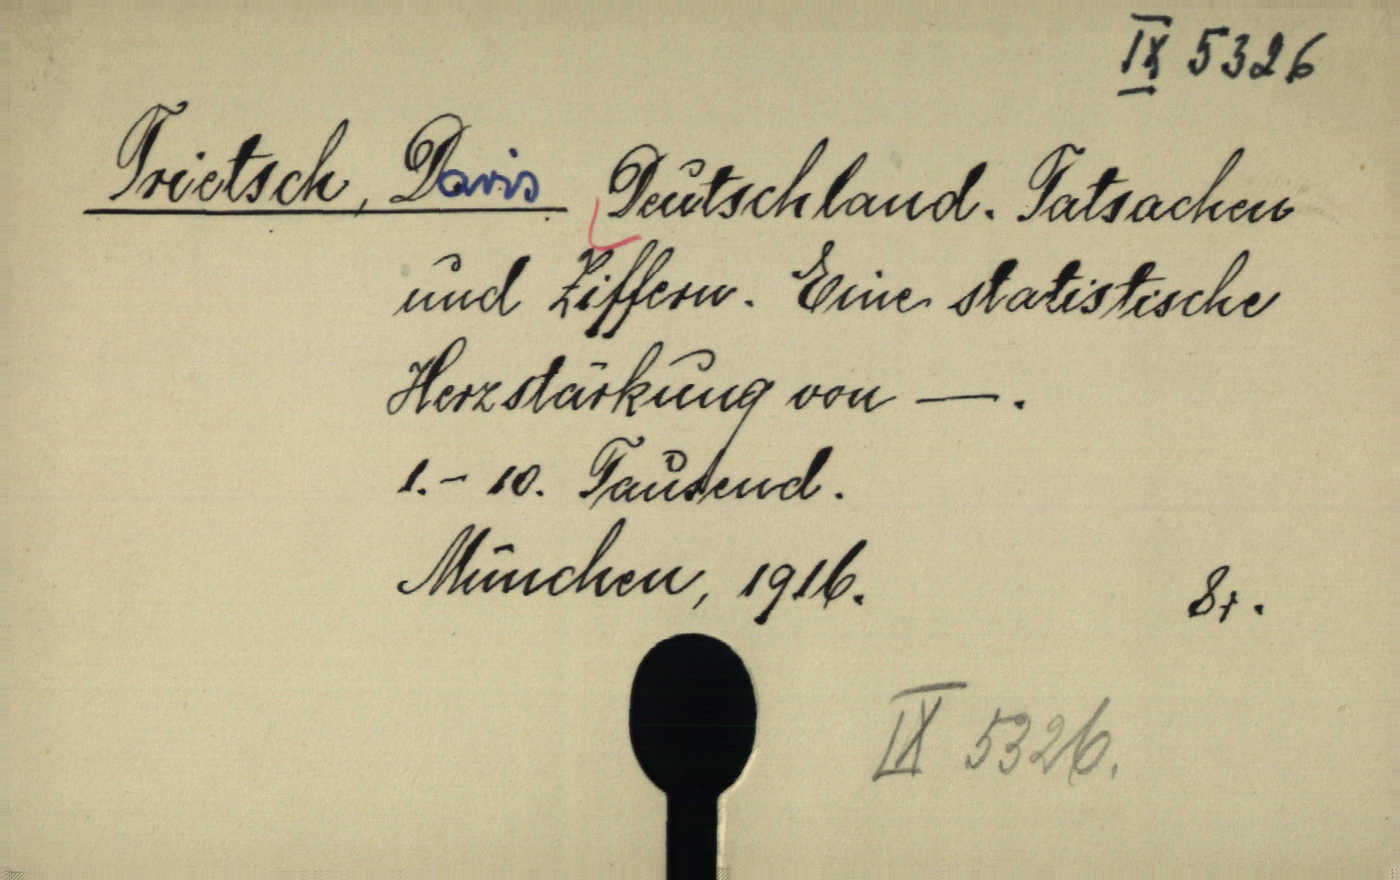 IX 5326
Trietsch, Davis Deutschland. Tatsachen
und Ziffern. Eine statistische
Herzstärkung von —.
1.- 10. Tausend.
München, 1916. 8r.
IX 5326.